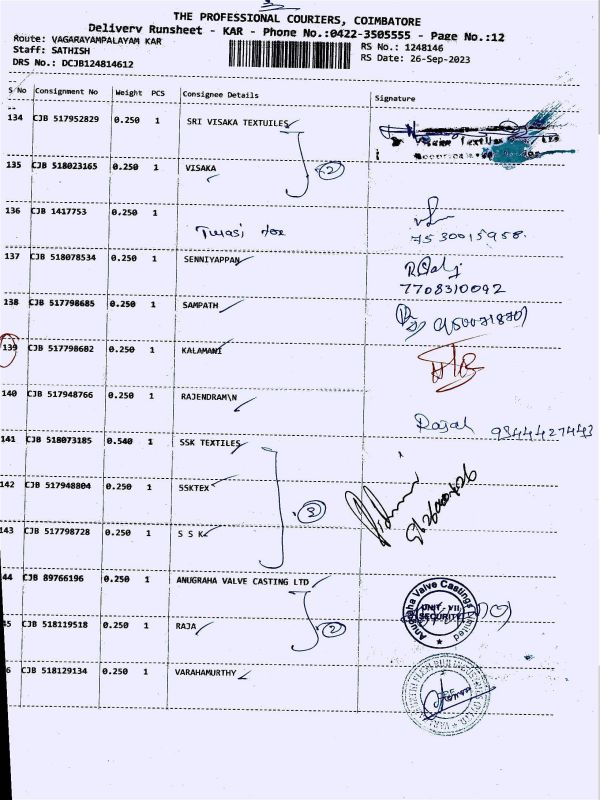 THE PROFESSIONAL COURIERS, COIMBATORE
Delivery Runsheet - KAR - Phone No.:0422-3505555 - Page No.:12
Route: VAGARAYAMPALAYAM KAR
RS No.: 1248146
Staff: SATHISH
RS Date: 26-Sep-2023
DRS No.: DCJB124814612
S No Consignment No Weight PCS Consignee Details Signature
134 CJB 517952829 0.250 1 SRI VISAKA TEXTUILES
135 CJB 518023165 0.250 1 VISAKA
2
136 CJB 1417753 0.250 1
7530015958
137 CJB 518078534 0.250 1 SENNIYAPPAN
7708310092
138 CJB 517798685 0.250 1 SAMPATH
139 CJB 517798682 0.250 1 KALAMANI
140 CJB 517948766 0.250 1 RAJENDRAM\N
9544427443
141 CJB 518073185 0.540 1 SSK TEXTILES
142 CJB 517948804 0.250 1 SSKTEX
3
143 CJB 517798728 0.250 1 S S K
44 CJB 89766196 0.250 1 ANUGRAHA VALVE CASTING LTD
Anugraha Valve Castings Limited
UNIT - VII
SECURITY
45 CJB 518119518 0.250 1 RAJA
2
6 CJB 518129134 0.250 1 VARAHAMURTHY